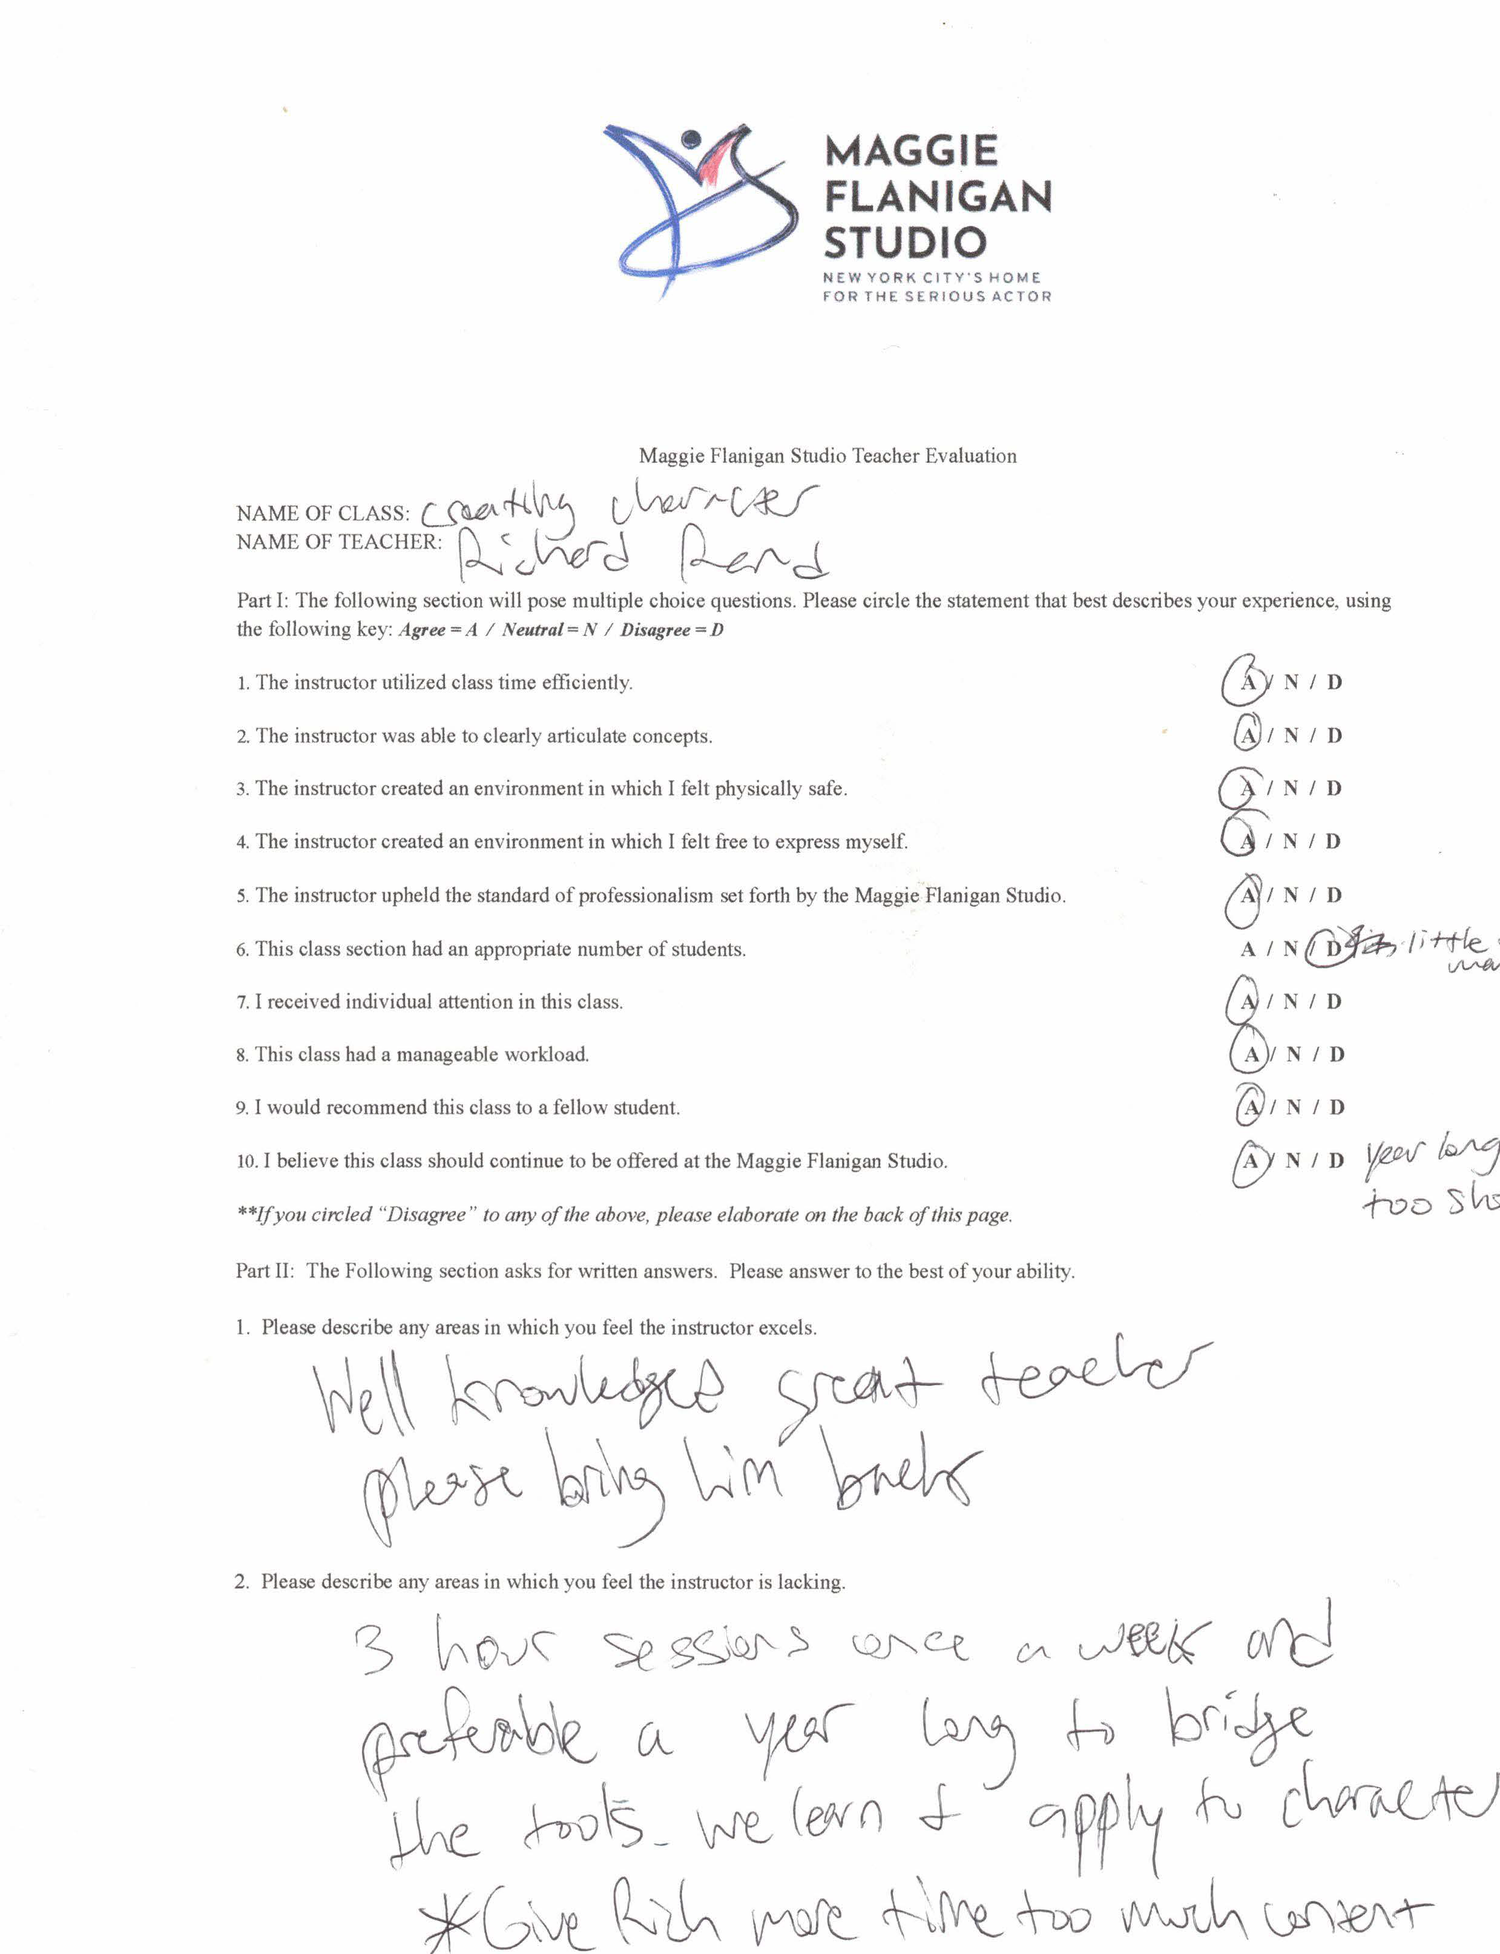 MAGGIE
FLANIGAN
STUDIO
NEW YORK CITY'S HOME
FOR THE SERIOUS ACTOR
Maggie Flanigan Studio Teacher Evaluation
NAME OF CLASS: Creating Character
NAME OF TEACHER: Richard Rand
Part I: The following section will pose multiple choice questions. Please circle the statement that best describes your experience, using
the following key: Agree = A / Neutral = N / Disagree = D
1. The instructor utilized class time efficiently. A / N / D
2. The instructor was able to clearly articulate concepts. A / N / D
3. The instructor created an environment in which I felt physically safe. A / N / D
4. The instructor created an environment in which I felt free to express myself. A / N / D
5. The instructor upheld the standard of professionalism set forth by the Maggie Flanigan Studio. A / N / D
6. This class section had an appropriate number of students. A / N / D little
7. I received individual attention in this class. A / N / D
8. This class had a manageable workload. A / N / D
9. I would recommend this class to a fellow student. A / N / D
10. I believe this class should continue to be offered at the Maggie Flanigan Studio. A / N / D year long
too sho
**If you circled "Disagree" to any of the above, please elaborate on the back of this page.
Part II: The Following section asks for written answers. Please answer to the best of your ability.
1. Please describe any areas in which you feel the instructor excels.
Well knowledged great teacher
please bring him back
2. Please describe any areas in which you feel the instructor is lacking.
3 hour sessions once a week and
preferable a year long to bridge
the tools we learn & apply to character
*Give Rich more time too much content